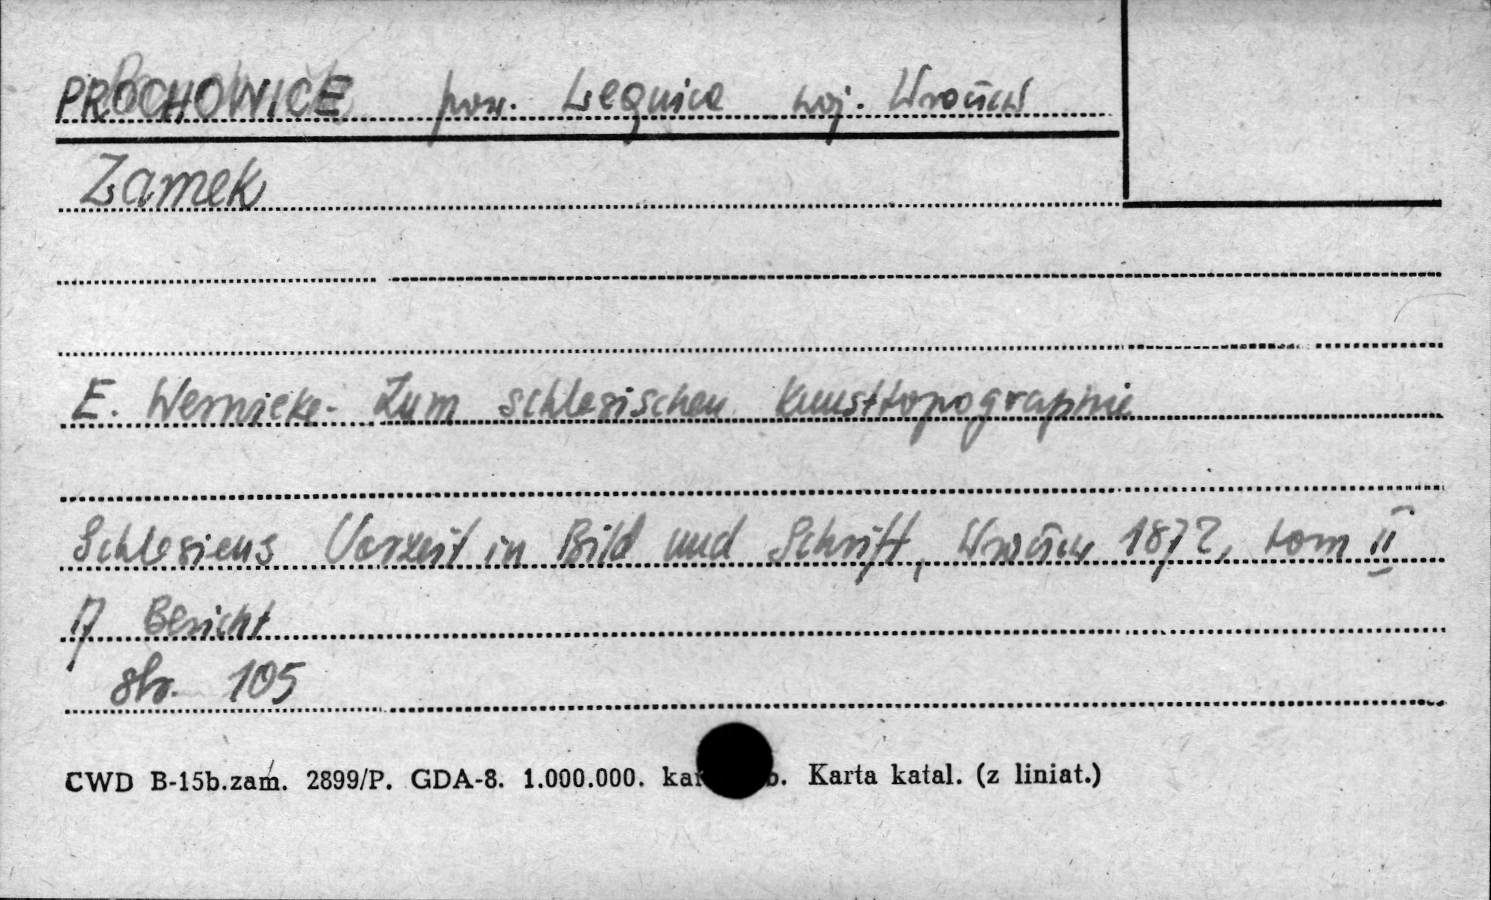 PROCHOWICE pow. Legnica woj. Wrocław
Zamek
E. Wernicke - Zum schlesischen Kunsttopographie
Schlesiens Vorzeit in Bild und Schrift, Wrocław 1872, tom II
17 Bericht
str. 105
CWD B-15b.zam. 2899/P. GDA-8. 1.000.000. Karta katal. (z liniat.)